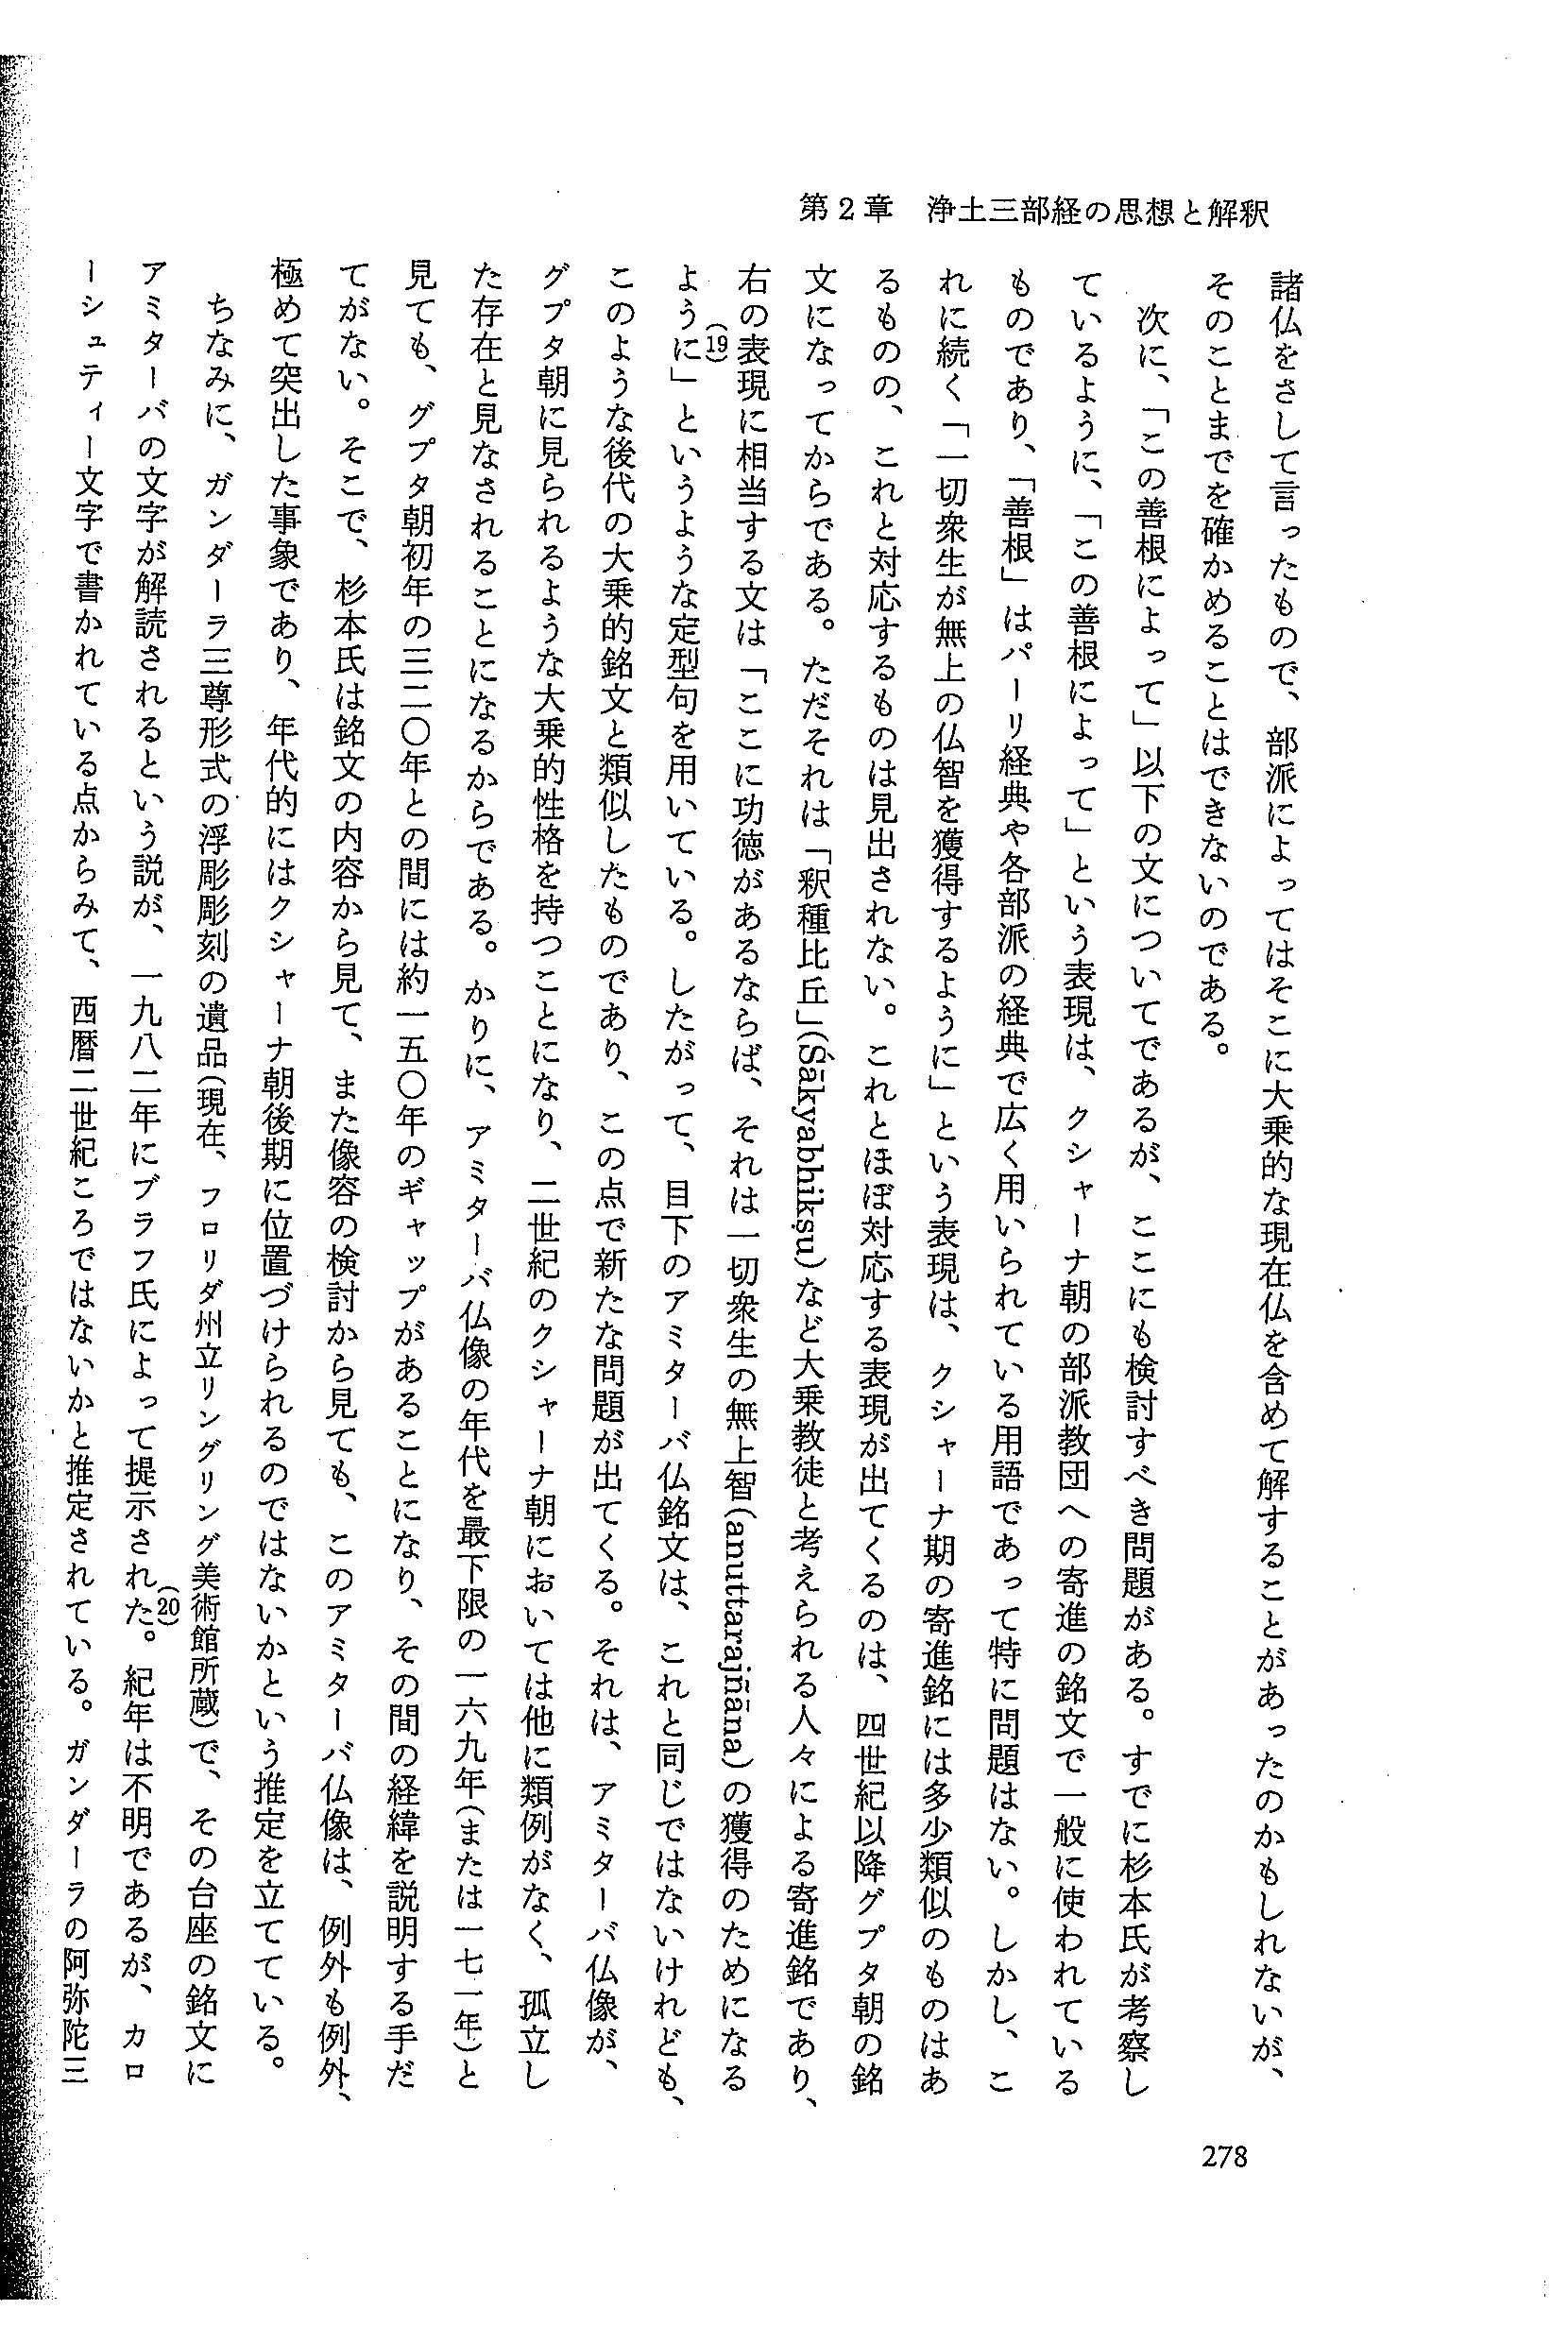 第2章　浄土三部経の思想と解釈
諸仏をさして言ったもので、部派によってはそこに大乗的な現在仏を含めて解することがあったのかもしれないが、
そのことまでを確かめることはできないのである。
次に、「この善根によって」以下の文についてであるが、ここにも検討すべき問題がある。すでに杉本氏が考察し
ているように、「この善根によって」という表現は、クシャーナ朝の部派教団への寄進の銘文で一般に使われている
ものであり、「善根」はパーリ経典や各部派の経典で広く用いられている用語であって特に問題はない。しかし、こ
れに続く「一切衆生が無上の仏智を獲得するように」という表現は、クシャーナ期の寄進銘には多少類似のものはあ
るものの、これと対応するものは見出されない。これとほぼ対応する表現が出てくるのは、四世紀以降グプタ朝の銘
文になってからである。ただそれは「釈種比丘」(Śākyabhikṣu)など大乗教徒と考えられる人々による寄進銘であり、
右の表現に相当する文は「ここに功徳があるならば、それは一切衆生の無上智(anuttarajñāna)の獲得のためになる
ように(19)」というような定型句を用いている。したがって、目下のアミターバ仏銘文は、これと同じではないけれども、
このような後代の大乗的銘文と類似したものであり、この点で新たな問題が出てくる。それは、アミターバ仏像が、
グプタ朝に見られるような大乗的性格を持つことになり、二世紀のクシャーナ朝においては他に類例がなく、孤立し
た存在と見なされることになるからである。かりに、アミターバ仏像の年代を最下限の一六九年(または一七一年)と
見ても、グプタ朝初年の三二〇年との間には約一五〇年のギャップがあることになり、その間の経緯を説明する手だ
てがない。そこで、杉本氏は銘文の内容から見て、また像容の検討から見ても、このアミターバ仏像は、例外も例外、
極めて突出した事象であり、年代的にはクシャーナ朝後期に位置づけられるのではないかという推定を立てている。
ちなみに、ガンダーラ三尊形式の浮彫彫刻の遺品(現在、フロリダ州立リングリング美術館所蔵)で、その台座の銘文に
アミターバの文字が解読されるという説が、一九八二年にブラフ氏によって提示された(20)。紀年は不明であるが、カロ
ーシュティー文字で書かれている点からみて、西暦二世紀ころではないかと推定されている。ガンダーラの阿弥陀三
278